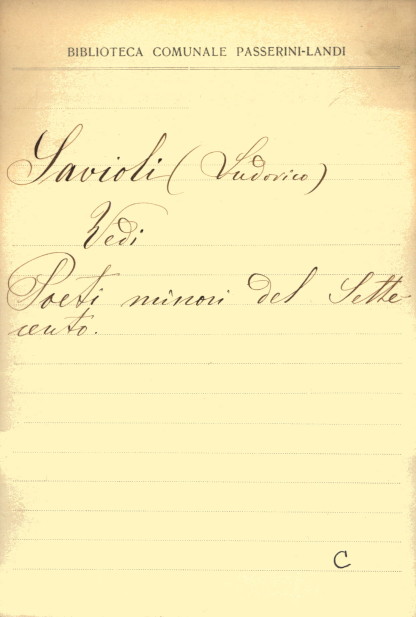 BIBLIOTECA COMUNALE PASSERINI-LANDI
Savioli (Ludovico)
Vedi
Poeti minori del Sette
cento.
C